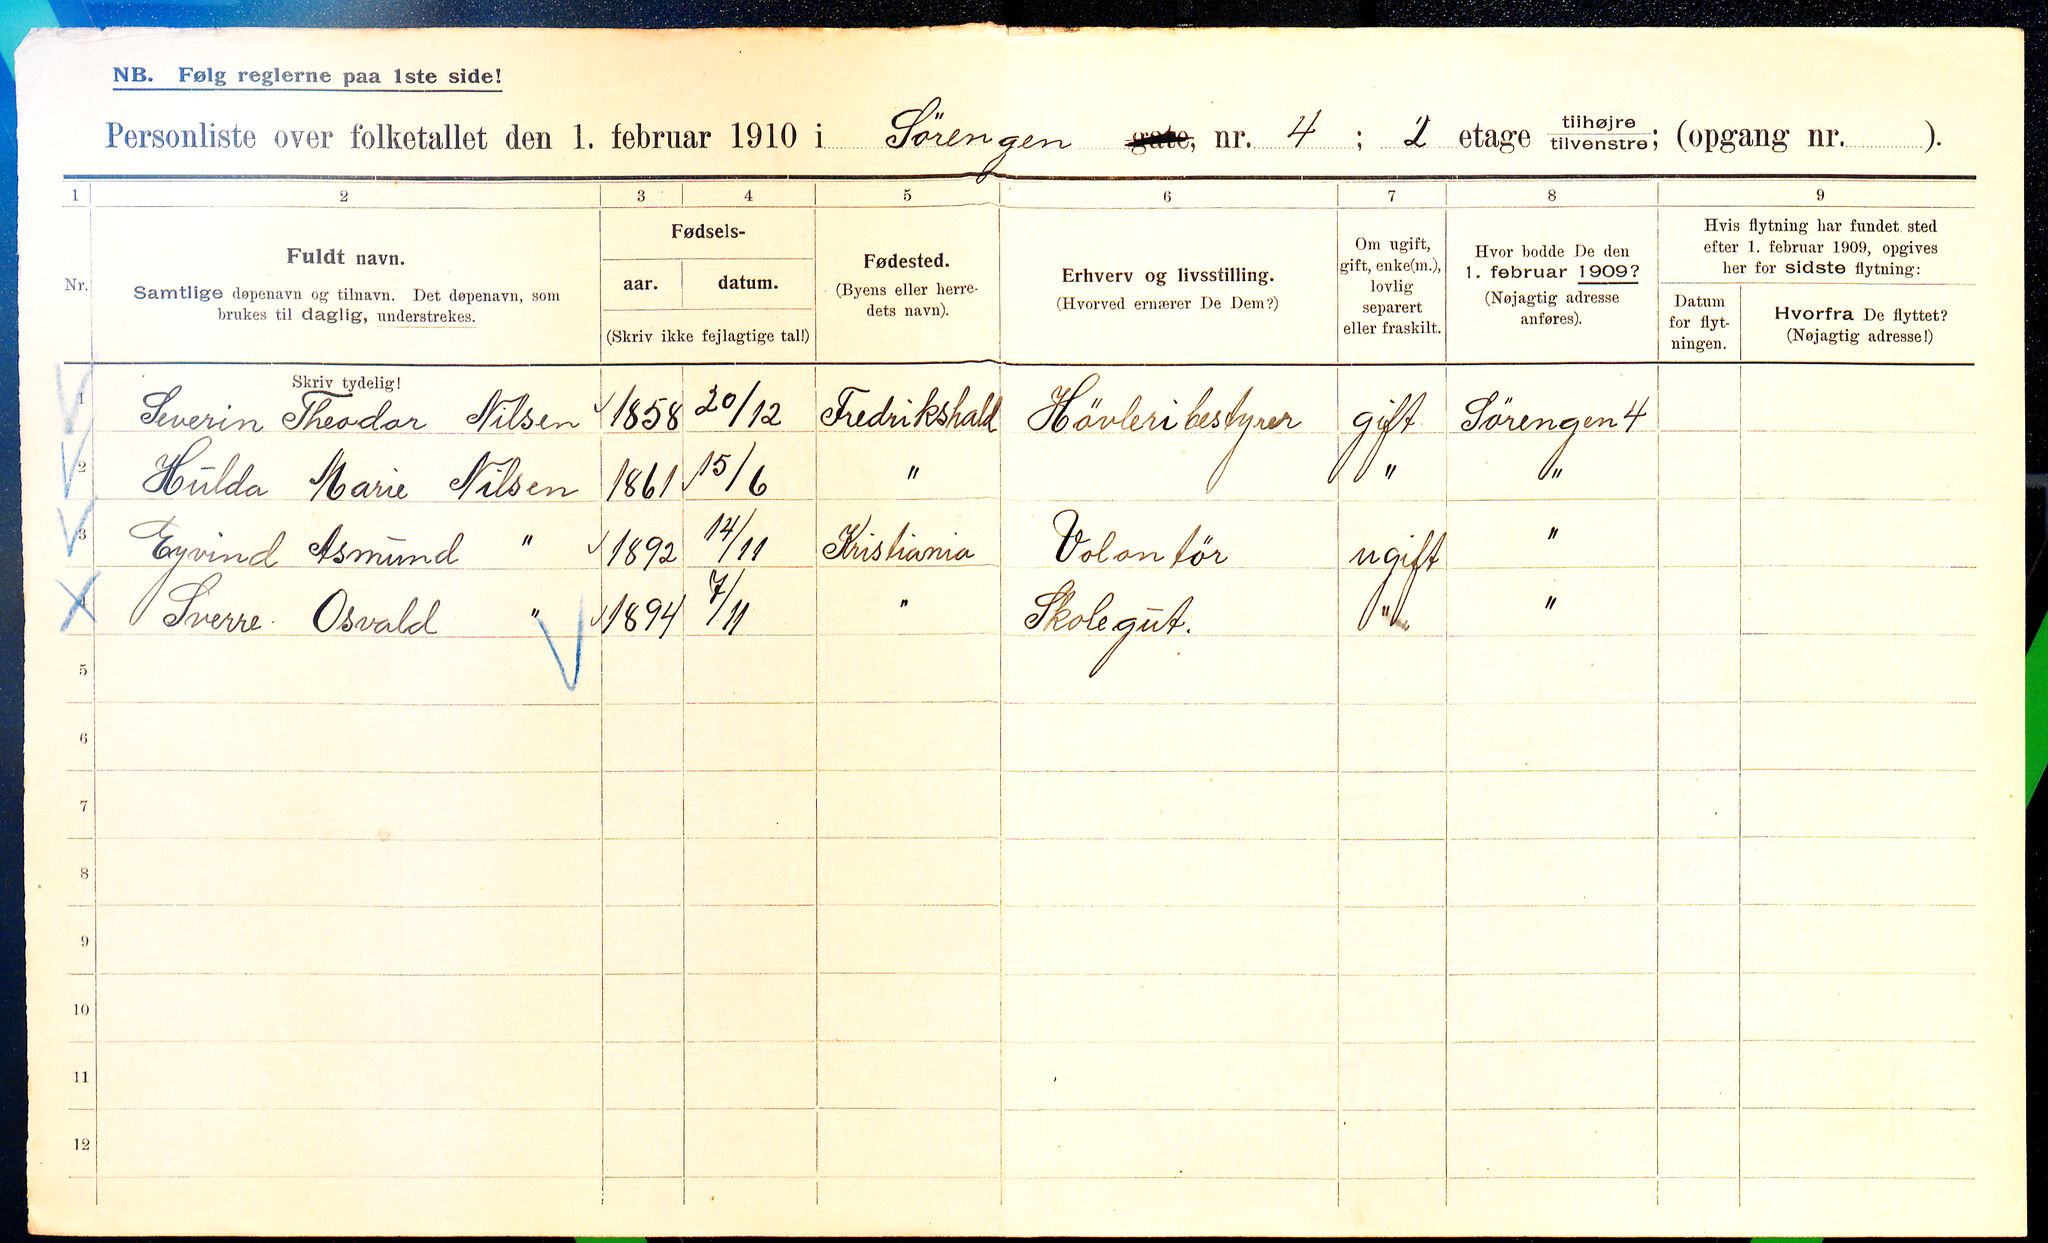 NB. Følg reglerne paa 1ste side!
Personliste over folketallet den 1. februar 1910 i Sörengen gate, nr. 4 ; 2 etage tilhøjre/tilvenstre; (opgang nr. ).
1 2 3 4 5 6 7 8 9
Nr.
Fuldt navn.
Samtlige døpenavn og tilnavn. Det døpenavn, som
brukes til daglig, understrekes.
Fødsels-
aar. datum.
(Skriv ikke fejlagtige tal!)
Fødested.
(Byens eller herre-
dets navn).
Erhverv og livsstilling.
(Hvorved ernærer De Dem?)
Om ugift,
gift, enke(m.),
lovlig
separert
eller fraskilt.
Hvor bodde De den
1. februar 1909?
(Nøjagtig adresse
anføres).
Hvis flytning har fundet sted
efter 1. februar 1909, opgives
her for sidste flytning:
Datum
for flyt-
ningen.
Hvorfra De flyttet?
(Nøjagtig adresse!)
Skriv tydelig!
1 Severin Theodor Nilsen 1858 20/12 Fredrikshald Hövleribestyrer gift Sörengen 4
2 Hulda Marie Nilsen 1861 15/6 " " "
3 Eyvind Asmund " 1892 14/11 Kristiania Volontör ugift "
4 Sverre Osvald " 1894 7/11 " Skolegut. " "
5
6
7
8
9
10
11
12